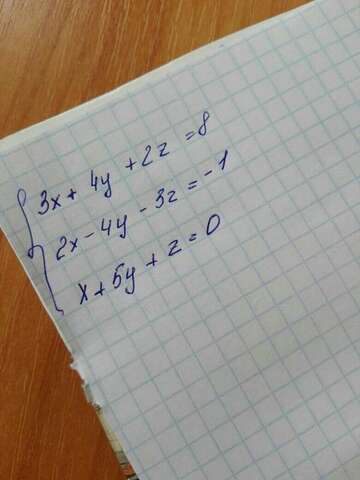 3x + 4y + 2z = 8
2x - 4y - 3z = -1
x + 5y + z = 0